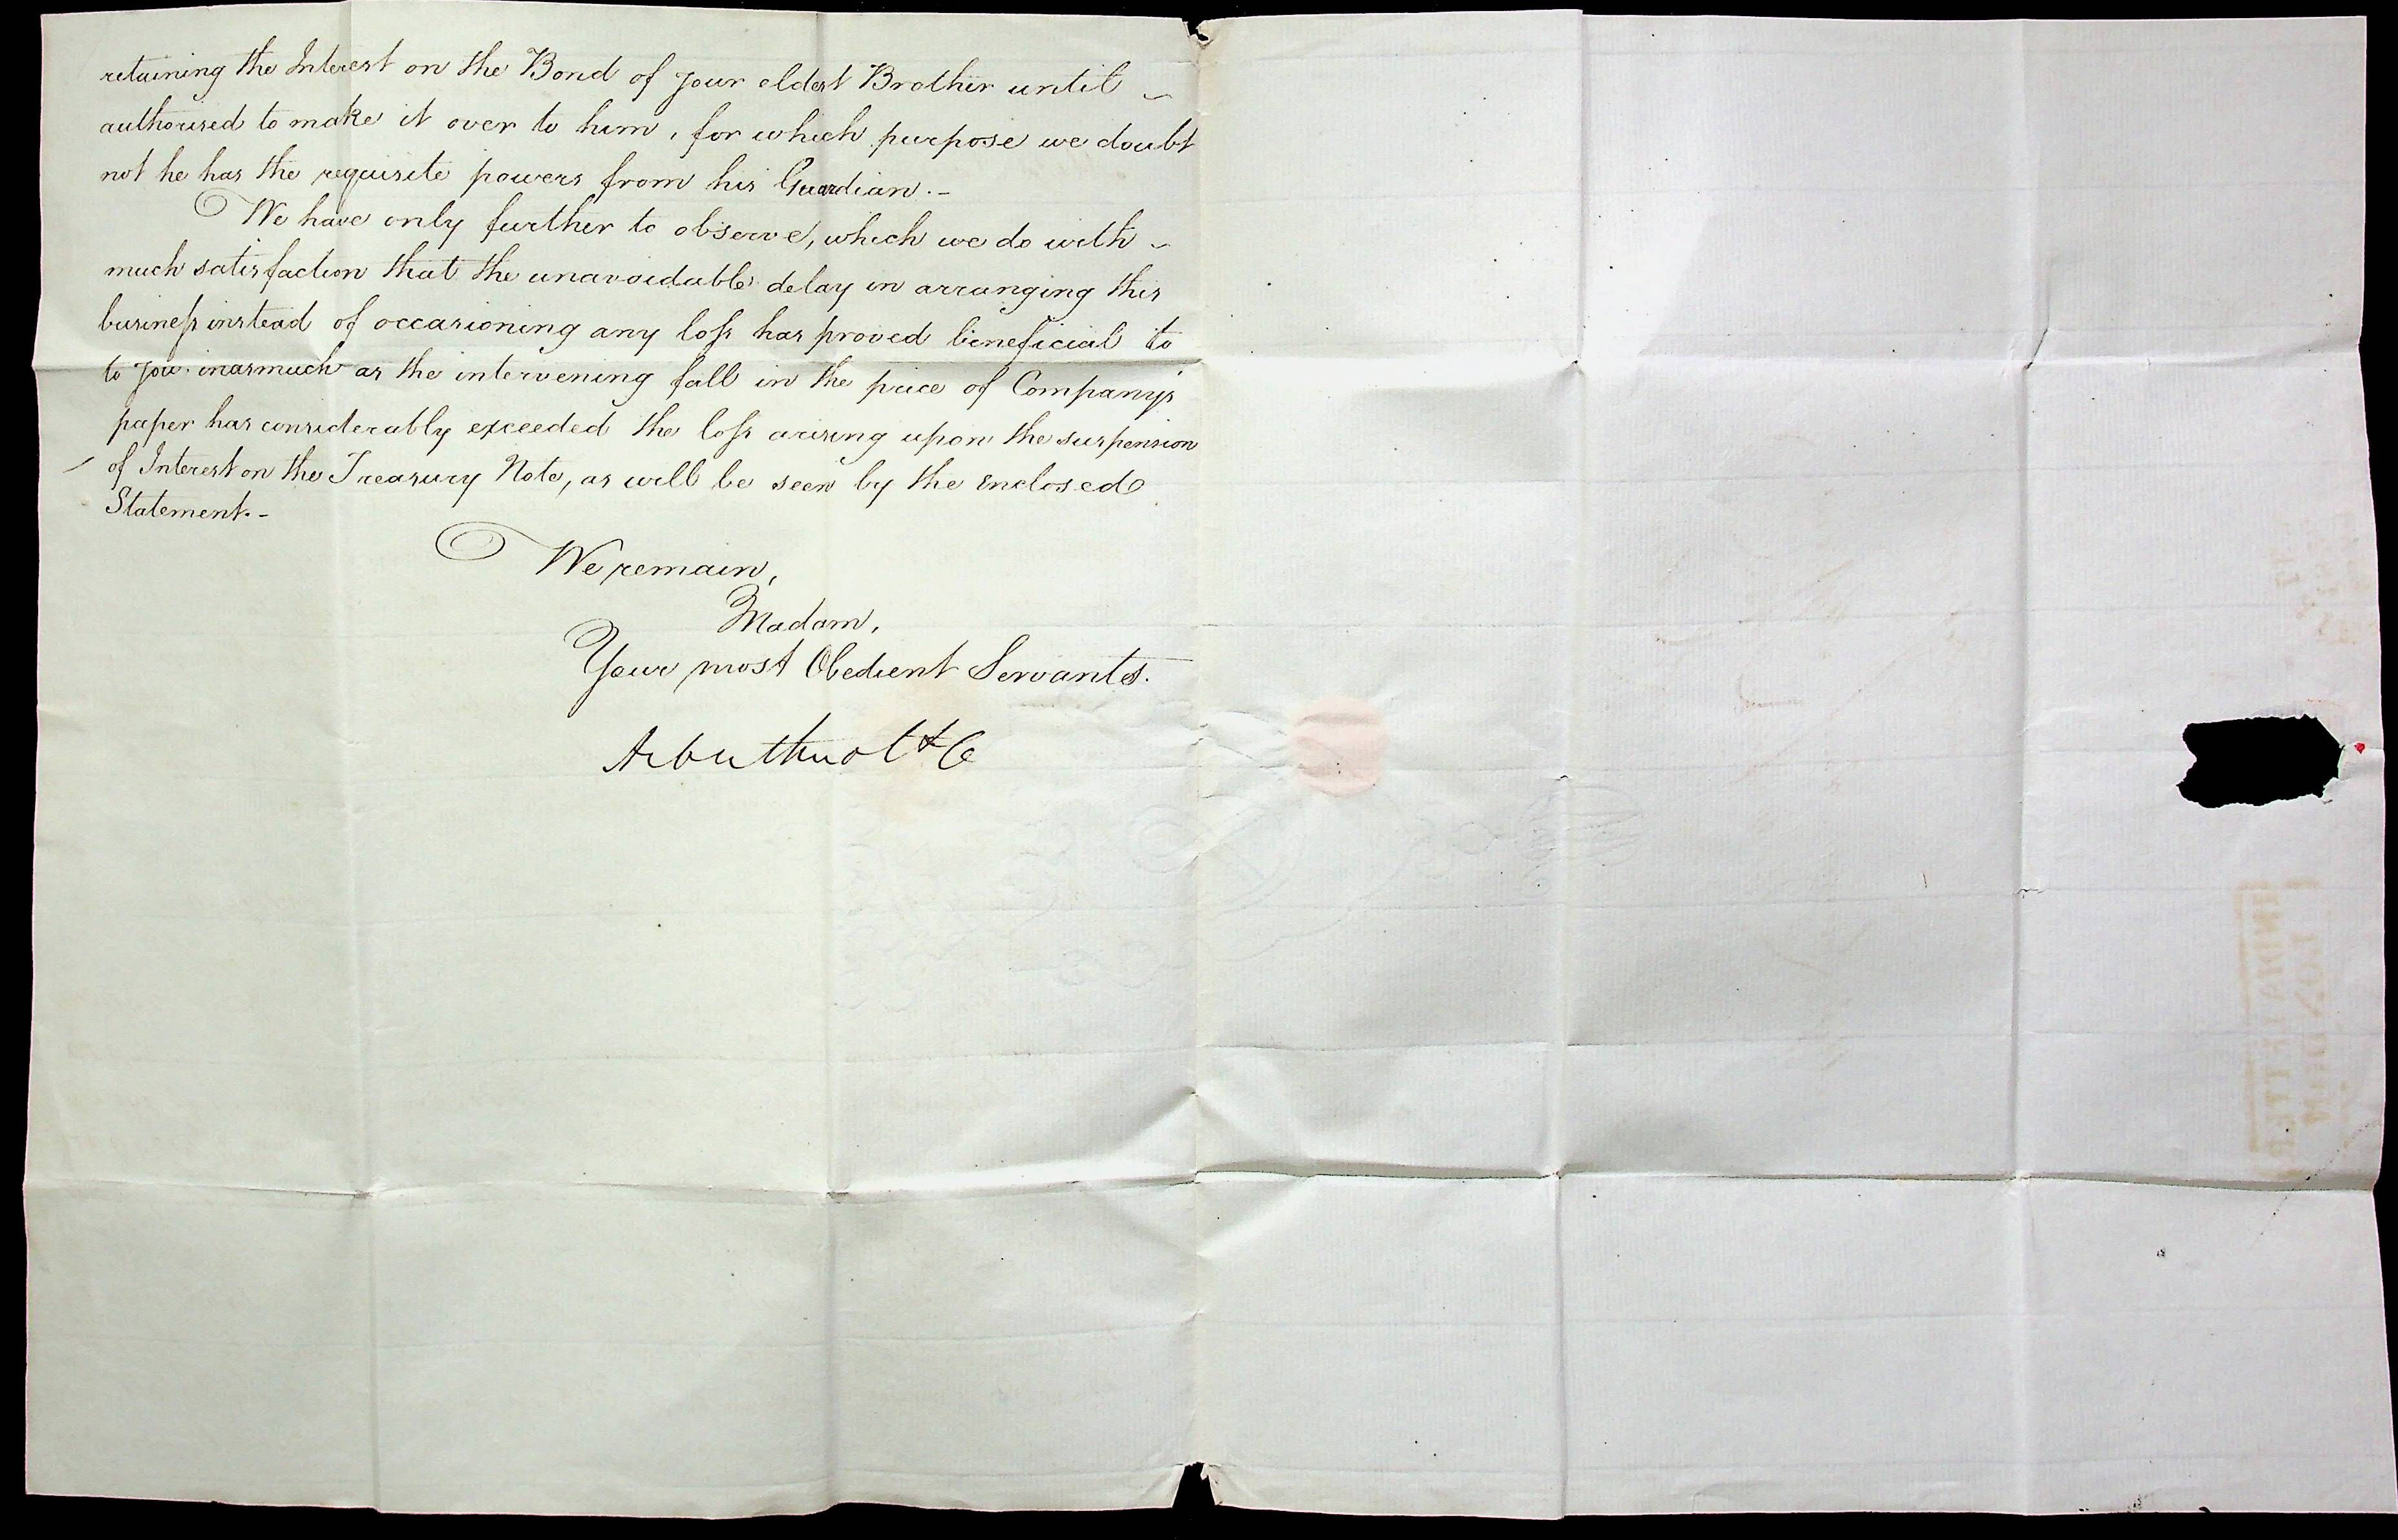 retaining the Interest on the Bond of your eldest Brother until ~
authorised to make it over to him, for which purpose we doubt
not he has the requisite powers from his Guardian.-
We have only further to observe, which we do with ~
much satisfaction that the unavoidable delay in arranging this
businefs instead of occasioning any lofs has proved beneficial to
to you. inasmuch as the intervening fall in the price of Company's
paper has considerably exceeded the lofs arising upon the suspension
of Interest on the Treasury Note, as will be seen by the enclosed
Statement.-
We remain,
Madam,
Your most Obedient Servants.
Arbuthnot & Co